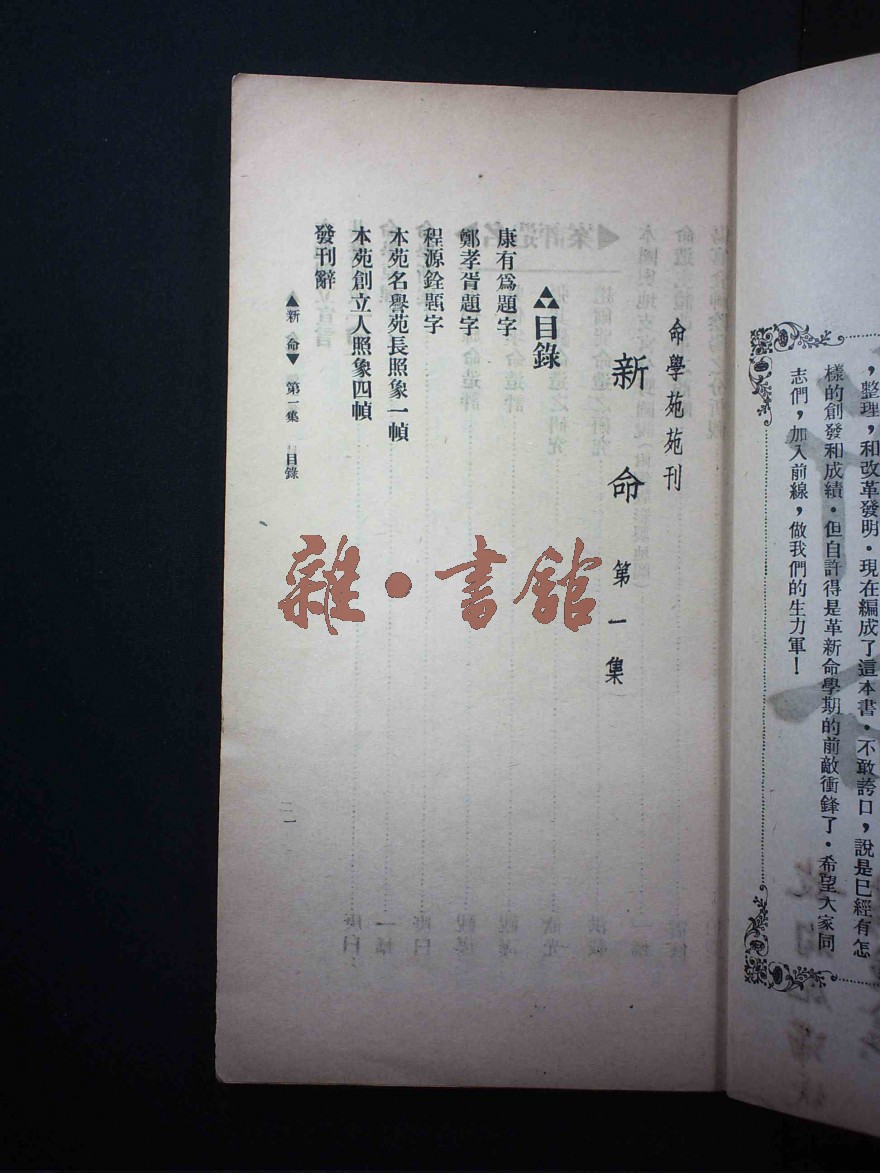 ，整理，和改革發明．現在編成了這本書．不敢誇口，說是已經有怎
樣的創發和成績．但自許得是革新命學期的前敵衝鋒了．希望大家同
志們，加入前線，做我們的生力軍！
命學苑苑刊
新命 第一集
目錄
康有爲題字
鄭孝胥題字
程源銓題字
本苑名譽苑長照象一幀
本苑創立人照象四幀
發刊辭
▲新 命▼ 第一集 目錄
雜・書館